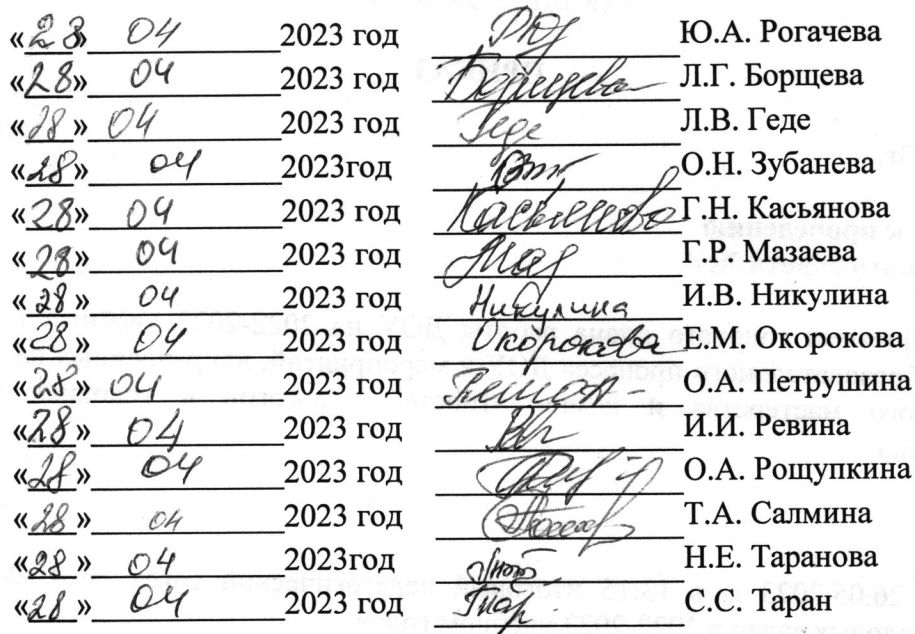 «28» 04 2023 год Ю.А. Рогачева
«28» 04 2023 год Борщева Л.Г. Борщева
«28» 04 2023 год Геде Л.В. Геде
«28» 04 2023год О.Н. Зубанева
«28» 04 2023 год Касьянова Г.Н. Касьянова
«28» 04 2023 год Г.Р. Мазаева
«28» 04 2023 год Никулина И.В. Никулина
«28» 04 2023 год Окорокова Е.М. Окорокова
«28» 04 2023 год О.А. Петрушина
«28» 04 2023 год И.И. Ревина
«28» 04 2023 год О.А. Рощупкина
«28» 04 2023 год Т.А. Салмина
«28» 04 2023год Н.Е. Таранова
«28» 04 2023 год С.С. Таран